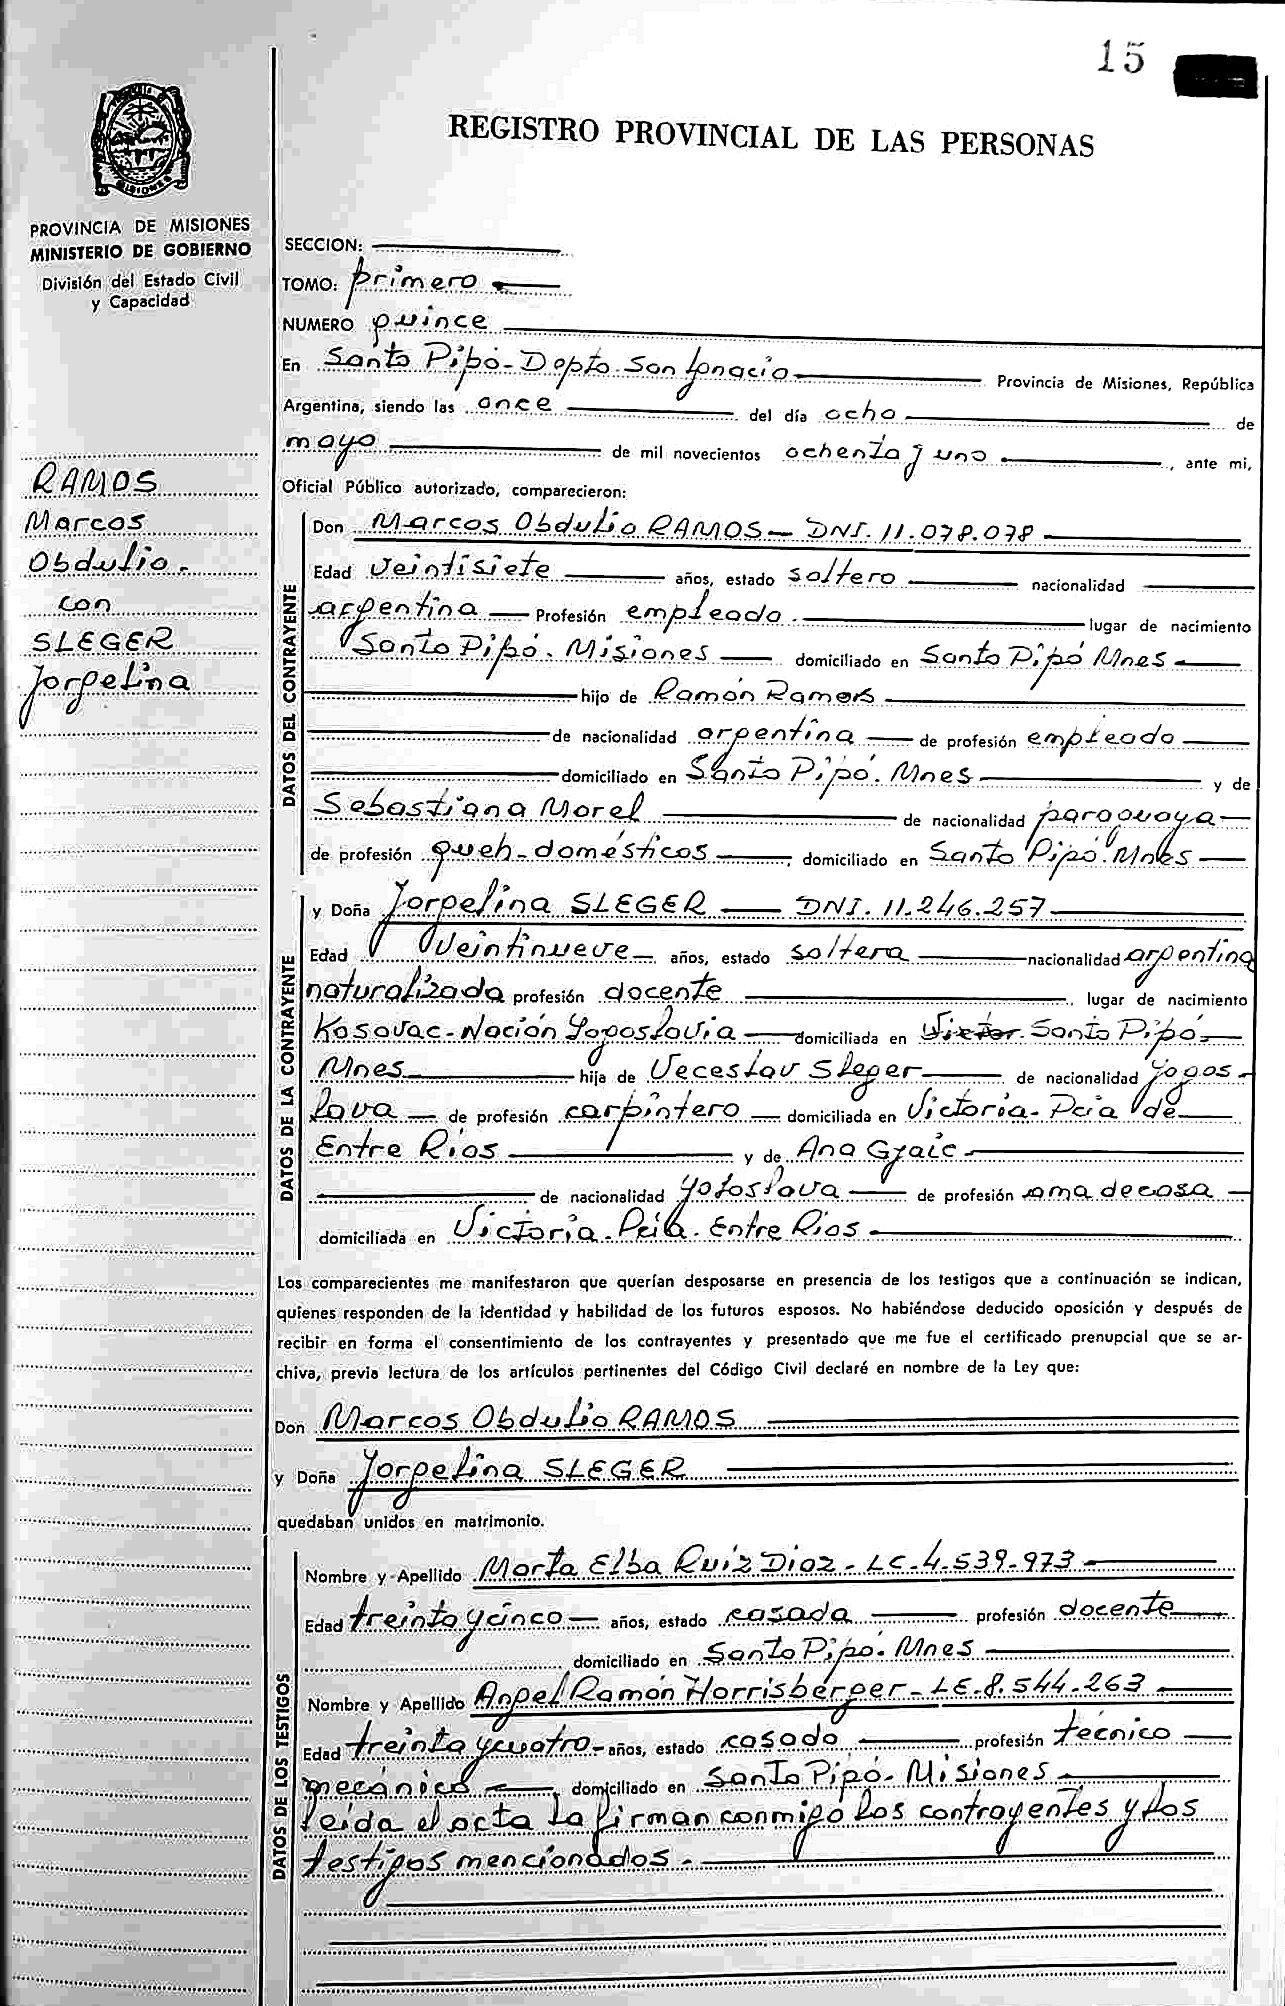 15
REGISTRO PROVINCIAL DE LAS PERSONAS
MISIONES
PROVINCIA DE MISIONES
MINISTERIO DE GOBIERNO
División del Estado Civil
y Capacidad
RAMOS
Marcos
Obdulio.
con
SLEGER
Jorgelina
SECCION:
TOMO: primero
NUMERO quince
En Santo Pipó - Depto San Ignacio Provincia de Misiones, República
Argentina, siendo las once del día ocho de
mayo de mil novecientos ochenta y uno, ante mi,
Oficial Público autorizado, comparecieron:
DATOS DEL CONTRAYENTE
Don Marcos Obdulio RAMOS - DNI. 11.078.078
Edad veintisiete años, estado soltero nacionalidad
argentina Profesión empleado lugar de nacimiento
Santo Pipó. Misiones domiciliado en Santo Pipó Mnes
hijo de Ramón Ramos
de nacionalidad argentina de profesión empleado
domiciliado en Santo Pipó. Mnes y de
Sebastiana Morel de nacionalidad paraguaya
de profesión queh-domésticos, domiciliado en Santo Pipó. Mnes
DATOS DE LA CONTRAYENTE
y Doña Jorgelina SLEGER DNI. 11.246.257
Edad veintinueve años, estado soltera nacionalidad argentina
naturalizada profesión docente lugar de nacimiento
Kosovac - Nación Yogoslavia domiciliada en Victor. Santo Pipó
Mnes hija de Veceslav Sleger de nacionalidad yogos-
lava de profesión carpintero domiciliada en Victoria - Pcia de
Entre Rios y de Ana Gzaic
de nacionalidad yogoslava de profesión ama de casa
domiciliada en Victoria. Pcia. Entre Rios
Los comparecientes me manifestaron que querían desposarse en presencia de los testigos que a continuación se indican,
quienes responden de la identidad y habilidad de los futuros esposos. No habiéndose deducido oposición y después de
recibir en forma el consentimiento de los contrayentes y presentado que me fue el certificado prenupcial que se ar-
chiva, previa lectura de los artículos pertinentes del Código Civil declaré en nombre de la Ley que:
Don Marcos Obdulio RAMOS
y Doña Jorgelina SLEGER
quedaban unidos en matrimonio.
DATOS DE LOS TESTIGOS
Nombre y Apellido Marta Elba Ruiz Diaz - LC. 4.539-973
Edad treinta y cinco años, estado casada profesión docente
domiciliado en Santo Pipó. Mnes
Nombre y Apellido Angel Ramón Horrisberger - LE. 8.544.263
Edad treinta y cuatro años, estado casado profesión técnico
mecánico, domiciliado en Santo Pipó - Misiones
leída el acta la firman conmigo los contrayentes y los
testigos mencionados.